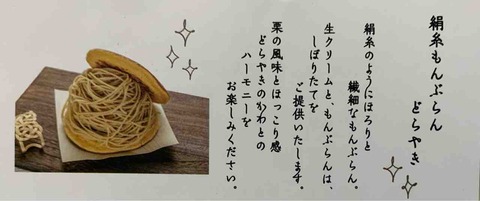 絹糸もんぶらん
どらやき
絹糸のようにほろりと
繊細なもんぶらん。
生クリームと、もんぶらんは、
しぼりたてを
ご提供いたします。
栗の風味とほっこり感
どらやきのかわとの
ハーモニーを
お楽しみください。